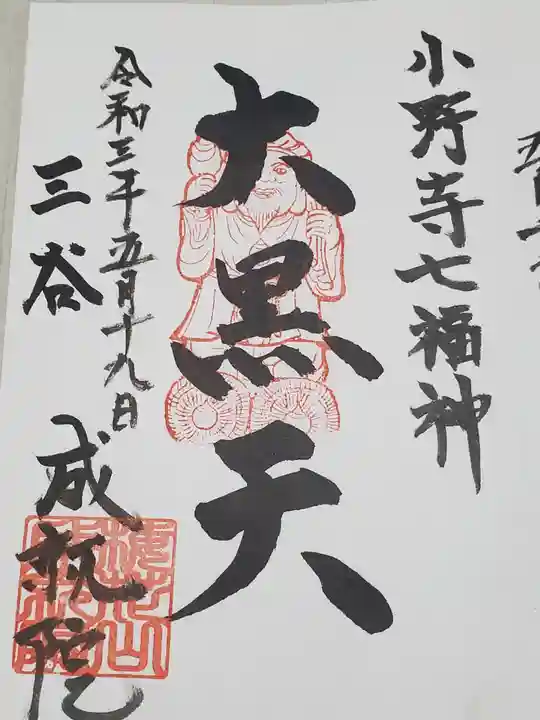 小野寺七福神
大黒天
令和三年五月十九日
三谷
成就院